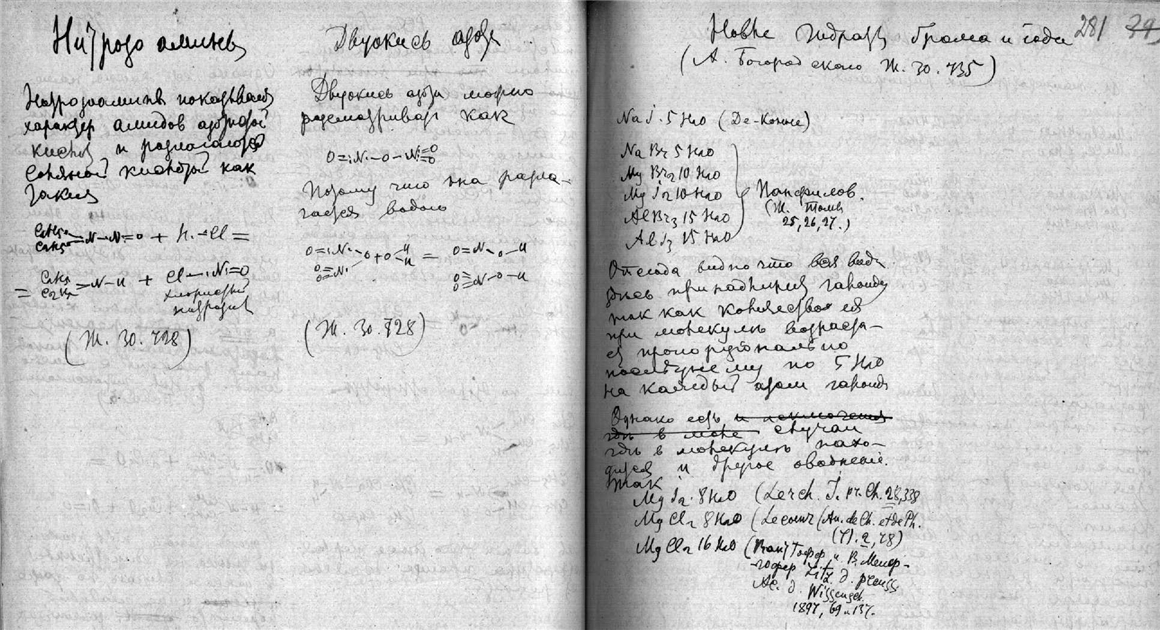 Нитрозо амины
Нитрозоамины показывают
характер амидов азотной
кислоты и разлагаются
соляной кислотой как
таких
C2H5 C2H5 N-N=O + H-Cl =
= C2H5 C2H5 N-H + Cl-N=O
хлористый
нитрозил
(Ж. 30. 728)
Двуокись азота
Двуокись азота можно
рассматривать как
O=N-O-N=O=O
Потому что она разла-
гается водою
O=N O=O=N O + O H H = O=N-O-H
O=O=N-O-H
(Ж. 30. 728)
281
Новые гидраты брома и иода
(А. Богородского Ж. 30. 735)
NaJ. 5 H2O (De-Коппе)
NaBr 5 H2O
MgBr2 10 H2O
MgJ2 10 H2O
AlBr3 15 H2O
AlJ3 15 H2O
Панфилов.
(Ж. Томы
25, 26, 27.)
Отсюда видно что вся вода
здесь принадлежит галоиду
так как количество ея
при молекуле возрастает
ся пропорционально
постоянному по 5 H2O
на каждый атом галоида
Однако есть и исключения
где в моле случаи
где в молекуле нахо-
дится и другое оводнение.
Так
MgJ2 8 H2O (Lerch. J. pr. Ch. 28, 338
MgCl2 8 H2O (Lecoeur (An. de Ch. et de Ph.
(7). 2, 78)
MgCl2 16 H2O (Вант Гофф и В. Мейер-
гофер Sitz. d. preuss
Ac. d. Wissensch.
1897, 69 и 137.